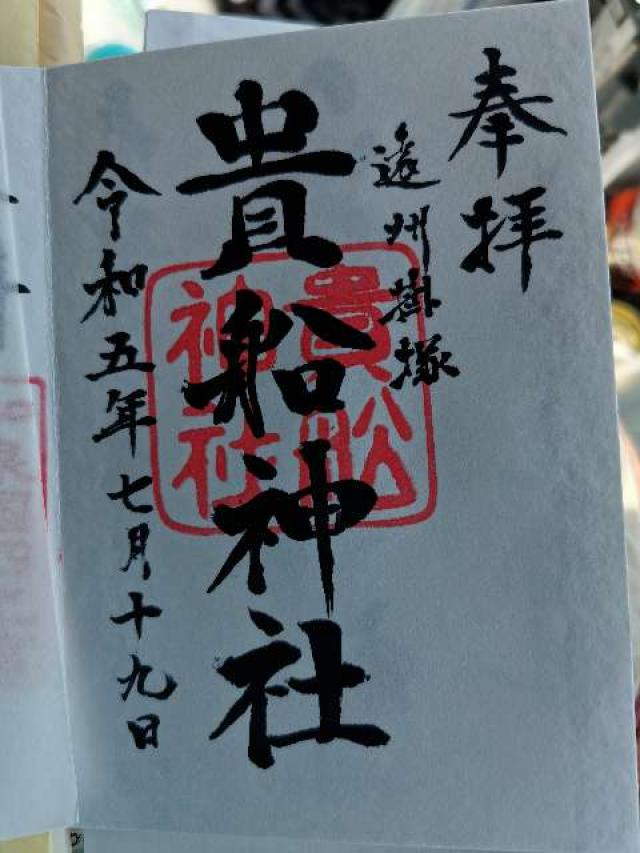 奉拝
遠州掛塚
貴船神社
貴船
神社
令和五年七月十九日